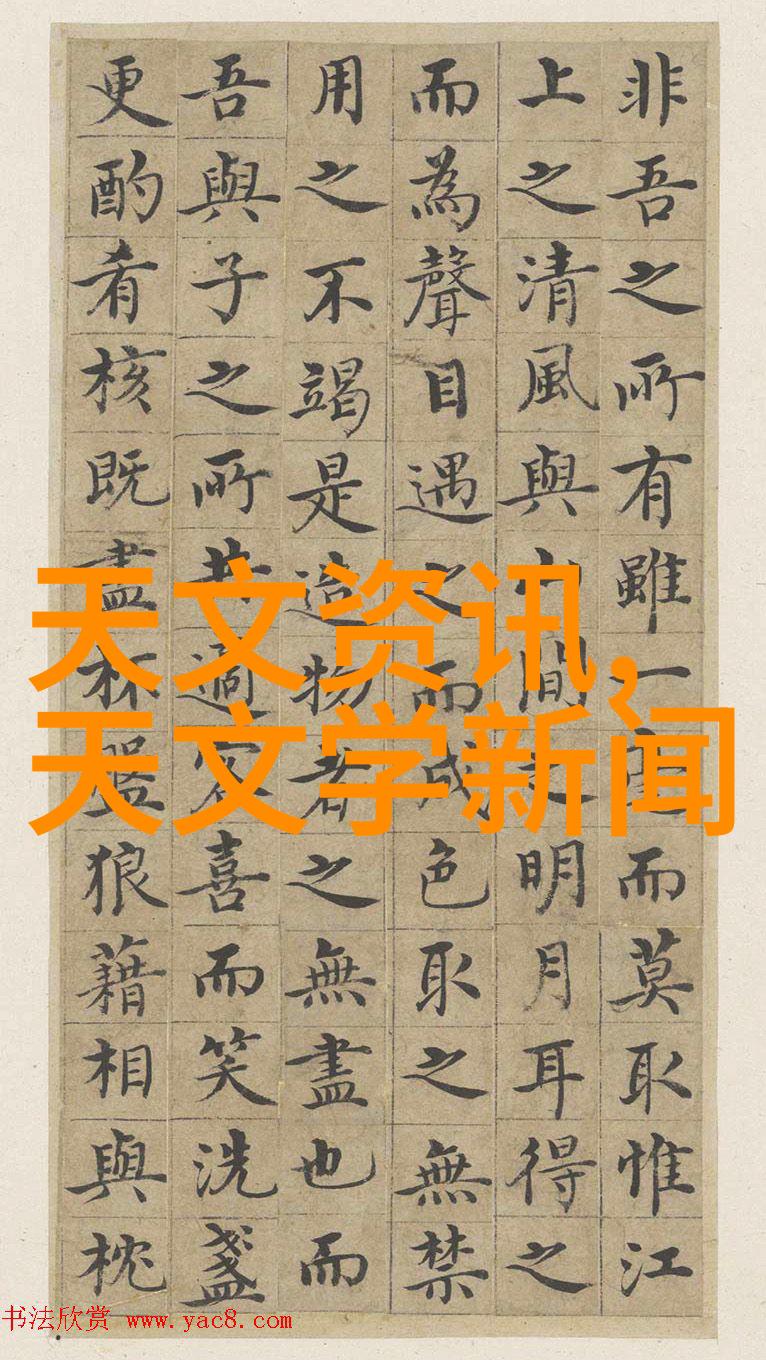 非吾之所有雖一毫而莫取惟江
上之清風與山間之明月耳得之
而為聲目遇之而成色取之無禁
用之不竭是造物者之無盡也而
吾與子之所共適客喜而笑洗盞
更酌肴核既盡杯盤狼藉相與枕
天文资讯,
天文学新闻
书法欣赏 www.yac8.com